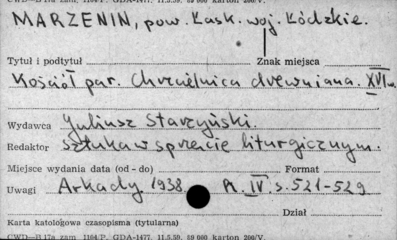 CWD—B17a zam. 1104/P. GDA-1477. 11.5.59. 59 000 karton 200/V.
MARZENIN, pow. Łask. woj. Łódzkie.
Tytuł i podtytuł Znak miejsca
Kościół par. Chrzcielnica drewniana. XVI w.
Wydawca Juliusz Starzyński.
Redaktor sztuka w sprzęcie liturgicznym.
Miejsce wydania data (od - do) Format
Uwagi Arkady 1938. R. IV. s. 521-529
Dział
Karta katologowa czasopisma (tytularna)
CWD—B17a zam. 1104/P. GDA-1477. 11.5.59. 59 000 karton 200/V.